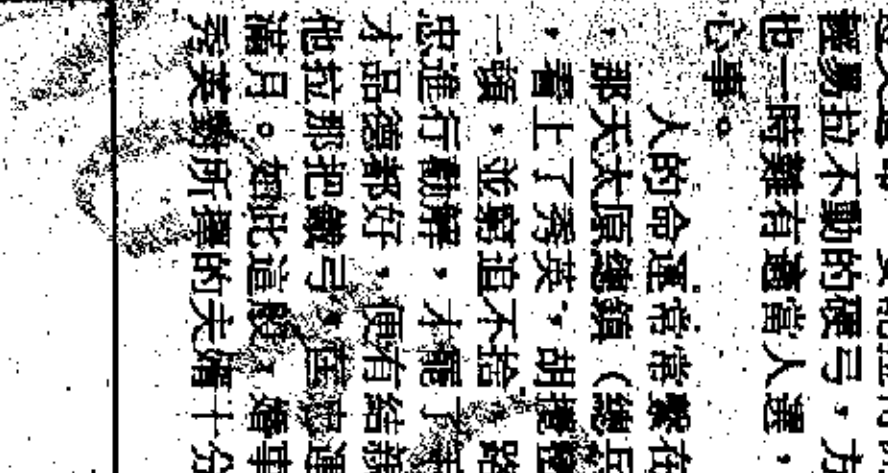 輕易拉不動的硬弓，力
也一時難有適當人選，
心事。
人的命運常常繫在
，那天太原總鎮（總兵
，看上了秀英，胡攪蠻
一頓，並窮追不捨，路
忠進行勸解，才罷了
才品德都好，便有結親
他拉那把鐵弓，匡忠運
滿月。如此這般，婚事
秀英對所擇的夫婿十分